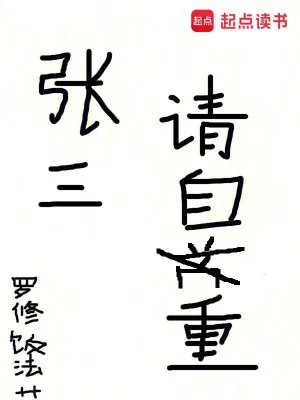 起点 起点读书
张三
请自重
罗修
饭法
艹